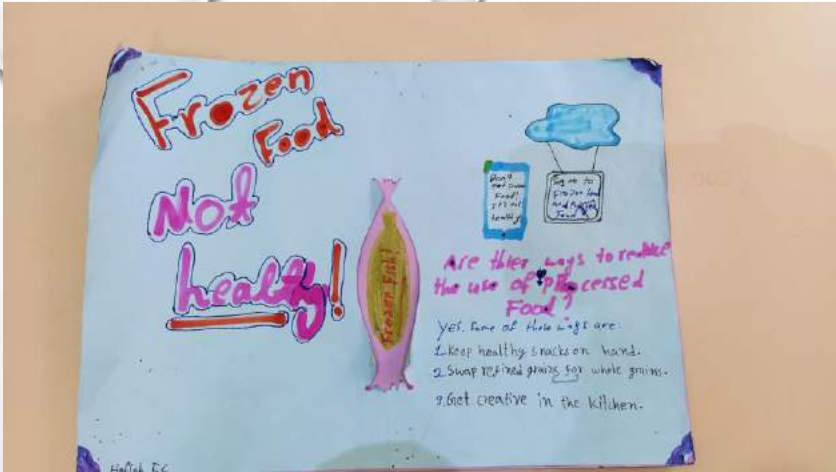 Frozen
Food
Not
healthy!
Frozen Fish!
Don't
Food!
healthy
Say no to
Frozen food
Food
Are thier ways to reduce
the use of processed
Food?
Yes. Some of those ways are:
1. Keep healthy snacks on hand.
2. Swap refined grains for whole grains.
3. Get creative in the kitchen.